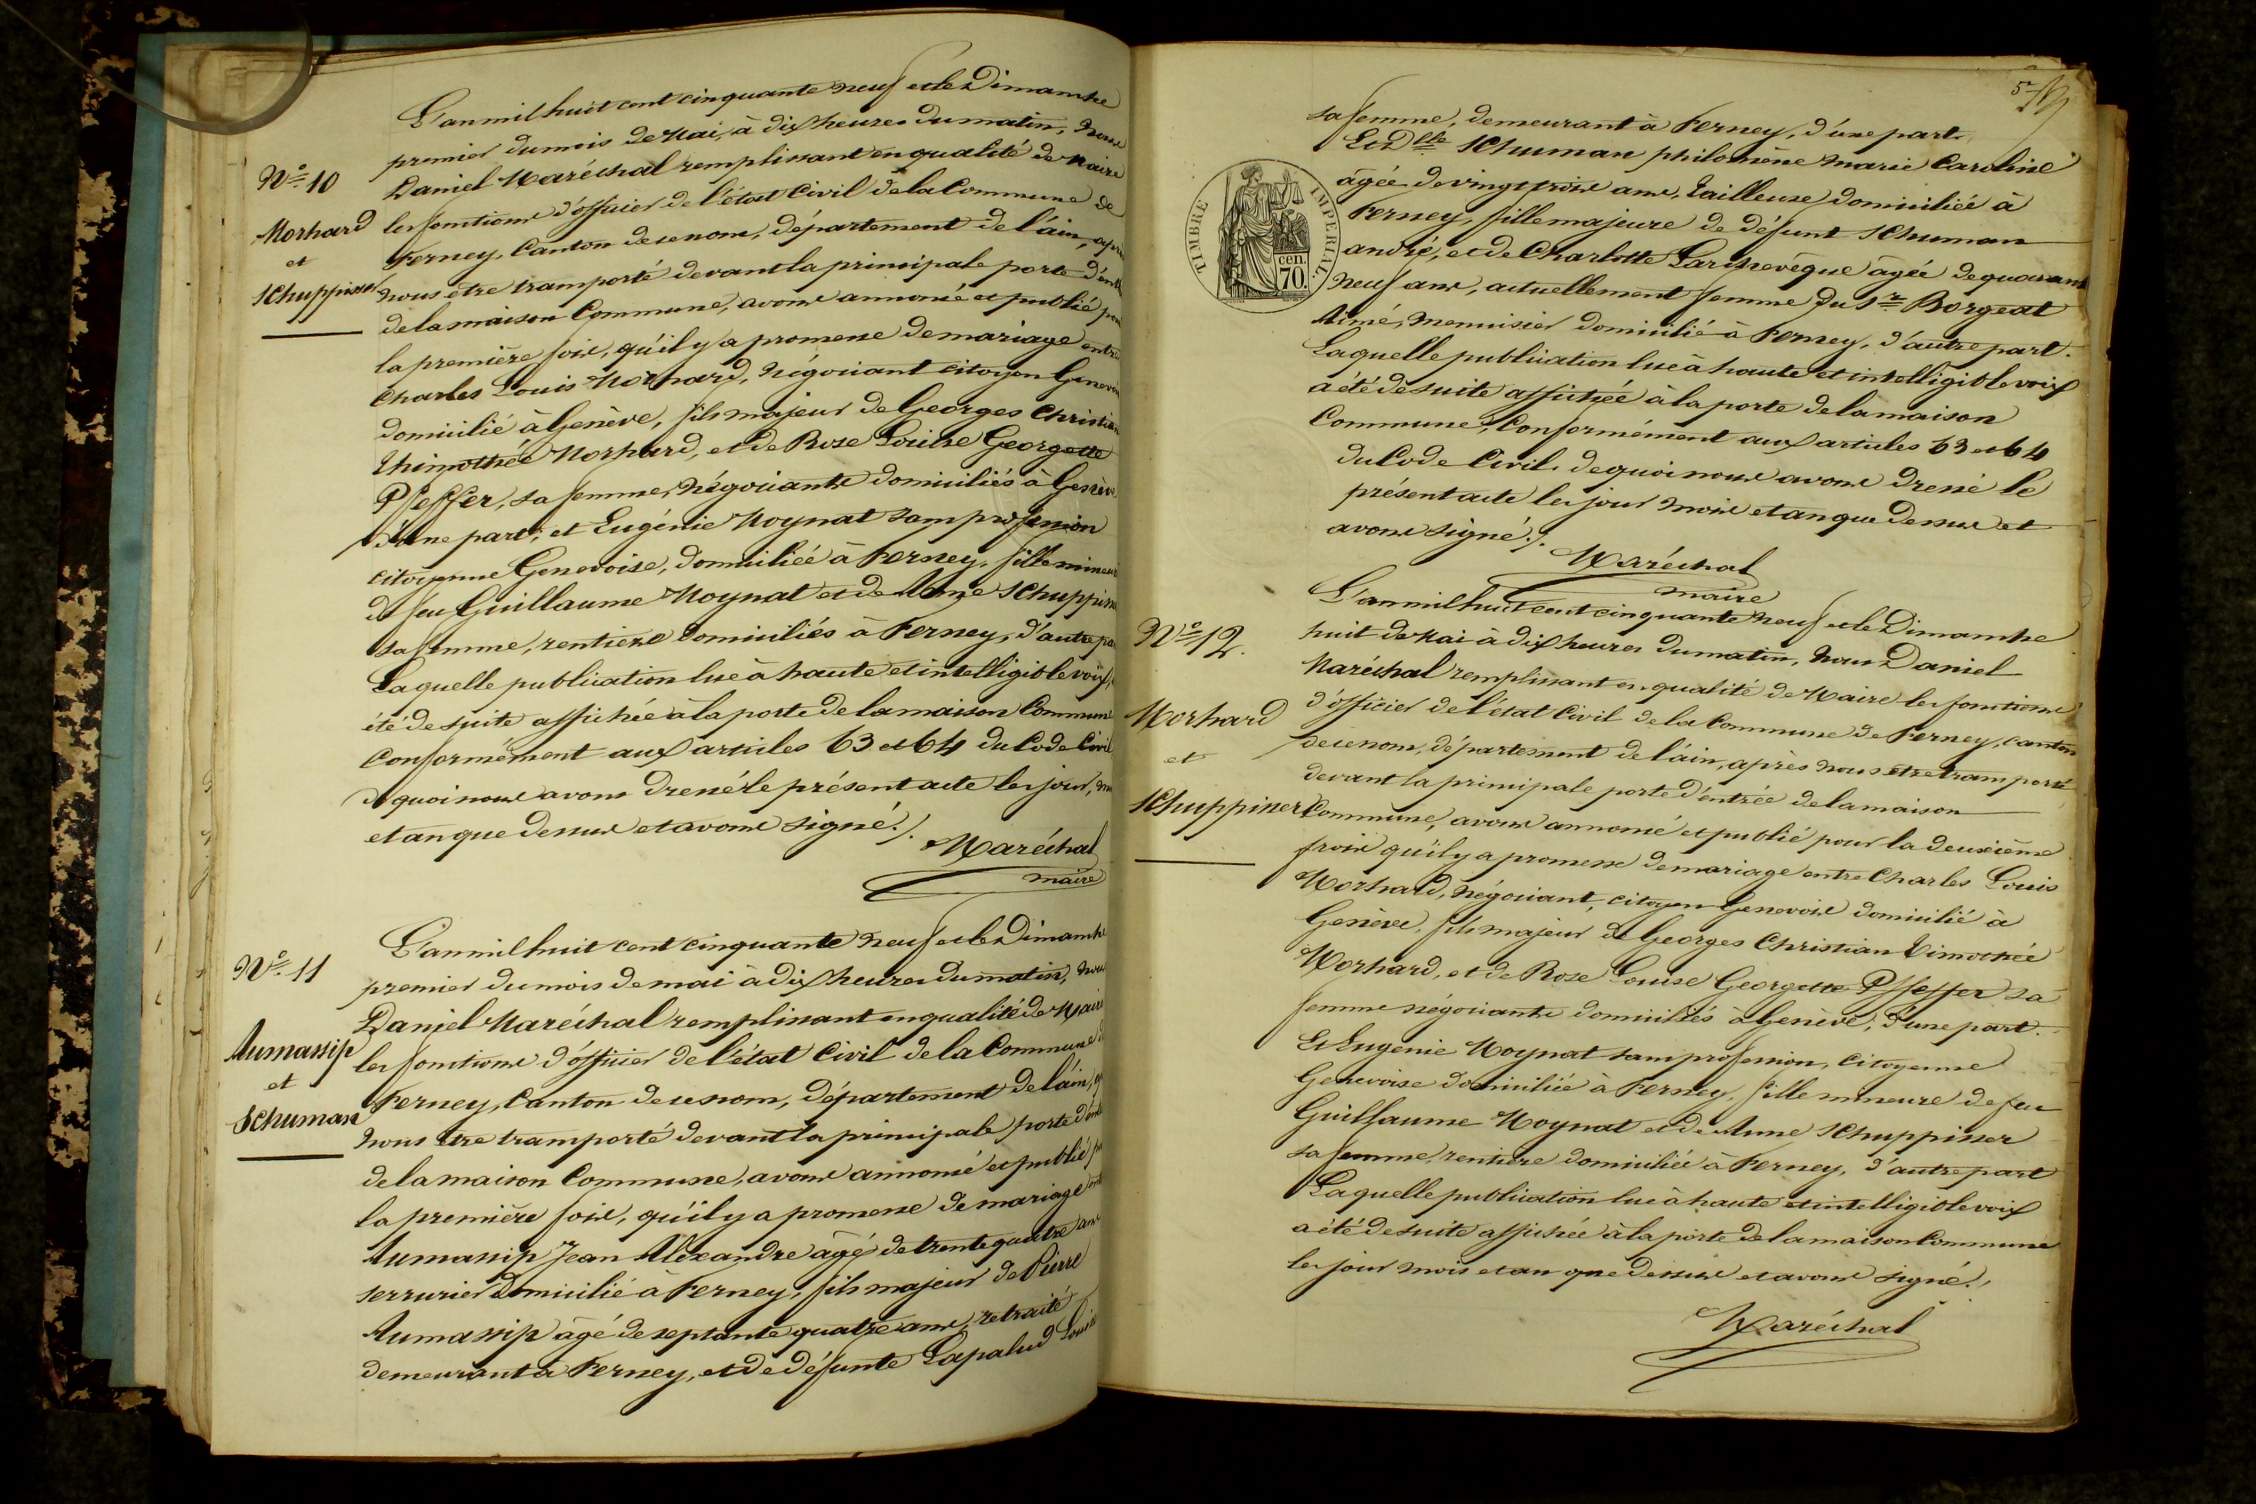 L'an mil huit cent cinquante neuf et le Dimanche
premier du mois de Mai, à dix heures du matin, Nous
N° 10
Daniel Maréchal remplissant en qualité de Maire
Morhard
et
Schuppisser
les fonctions d'officier de l'état Civil de la Commune de
Ferney, Canton de ce nom, département de l'ain, après
nous être transporté devant la principale porte d'entrée
de la maison Commune, avons annoncé et publié pour
la première fois, qu'il y a promesse de mariage entre
Charles Louis Morhard, Négociant citoyen Genevois
domicilié à Genève, fils majeur de Georges Christian
Thimothée Morhard, et de Rose Louise Georgette
Pfeffer, sa femme, Négociants domiciliés à Genève,
d'une part; et Eugénie Moynat sans profession
citoyenne Genevoise, domiciliée à Ferney, fille mineure
de feu Guillaume Moynat et de Anne Schuppisser
sa femme, rentière domiciliés à Ferney, d'autre part
Laquelle publication lue à haute et intelligible voix, a
été de suite affichée à la porte de la maison Commune
Conformément aux articles 63 et 64 du Code Civil
de quoi nous avons dressé le présent acte les jour, mois
et an que dessus et avons signé./.
Maréchal
maire
N° 11
Aumassip
et
Schuman
L'an mil huit cent cinquante neuf et le Dimanche
premier du mois de mai à dix heures du matin, Nous
Daniel Maréchal remplissant en qualité de Maire
les fonctions d'officier de l'état Civil de la Commune de
Ferney, Canton de ce nom, département de l'ain,
nous être transporté devant la principale porte d'entrée
de la maison Commune, avons annoncé et publié pour
la première fois, qu'il y a promesse de mariage entre
Aumassip Jean Alexandre âgé de trente quatre ans
serrurier domicilié à Ferney, fils majeur de Pierre
Aumassip âgé de septante quatre ans, retraité
demeurant à Ferney, et de défunte Lapalud Louise
sa femme, demeurant à Ferney, d'une part.
Et Dlle Schuman philomène Marie Caroline
âgée de vingt trois ans, tailleuse domiciliée à
Ferney, fille majeure de défunt Schuman
andré, et de Charlotte Larchevêque âgée de quarante
neuf ans, actuellement femme du Sr Borgeat
Aimé, menuisier domicilié à Ferney, d'autre part.
Laquelle publication lue à haute et intelligible voix
a été de suite affichée à la porte de la maison
Commune, Conformément aux articles 63 et 64
du Code Civil. de quoi nous avons dressé le
présent acte les jour mois et an que dessus et
avons signé./.
Maréchal
maire
TIMBRE IMPERIAL.
cen.
70.
N° 12.
Morhard
et
Schuppisser
L'an mil huit cent cinquante neuf et le Dimanche
huit de Mai à dix heures du matin, Nous Daniel
Maréchal remplissant en qualité de Maire les fonctions
d'officier de l'état Civil de la Commune de Ferney, canton
de ce nom, département de l'ain, après nous être transporté
devant la principale porte d'entrée de la maison
Commune, avons annoncé et publié pour la deuxième
fois qu'il y a promesse de mariage entre Charles Louis
Morhard, négociant, citoyen Genevois domicilié à
Genève, fils majeur de Georges Christian Timothée
Morhard, et de Rose Louise Georgette Pfeffer sa
femme négociants domiciliés à Genève, d'une part.
Et Eugenie Moynat sans profession, citoyenne
Genevoise domiciliée à Ferney, fille mineure de feu
Guillaume Moynat et de Anne Schuppisser
sa femme, rentière domiciliée à Ferney, d'autre part
Laquelle publication lue à haute et intelligible voix
a été de suite affichée à la porte de la maison Commune
les jour mois et an que dessus et avons signé./.
Maréchal